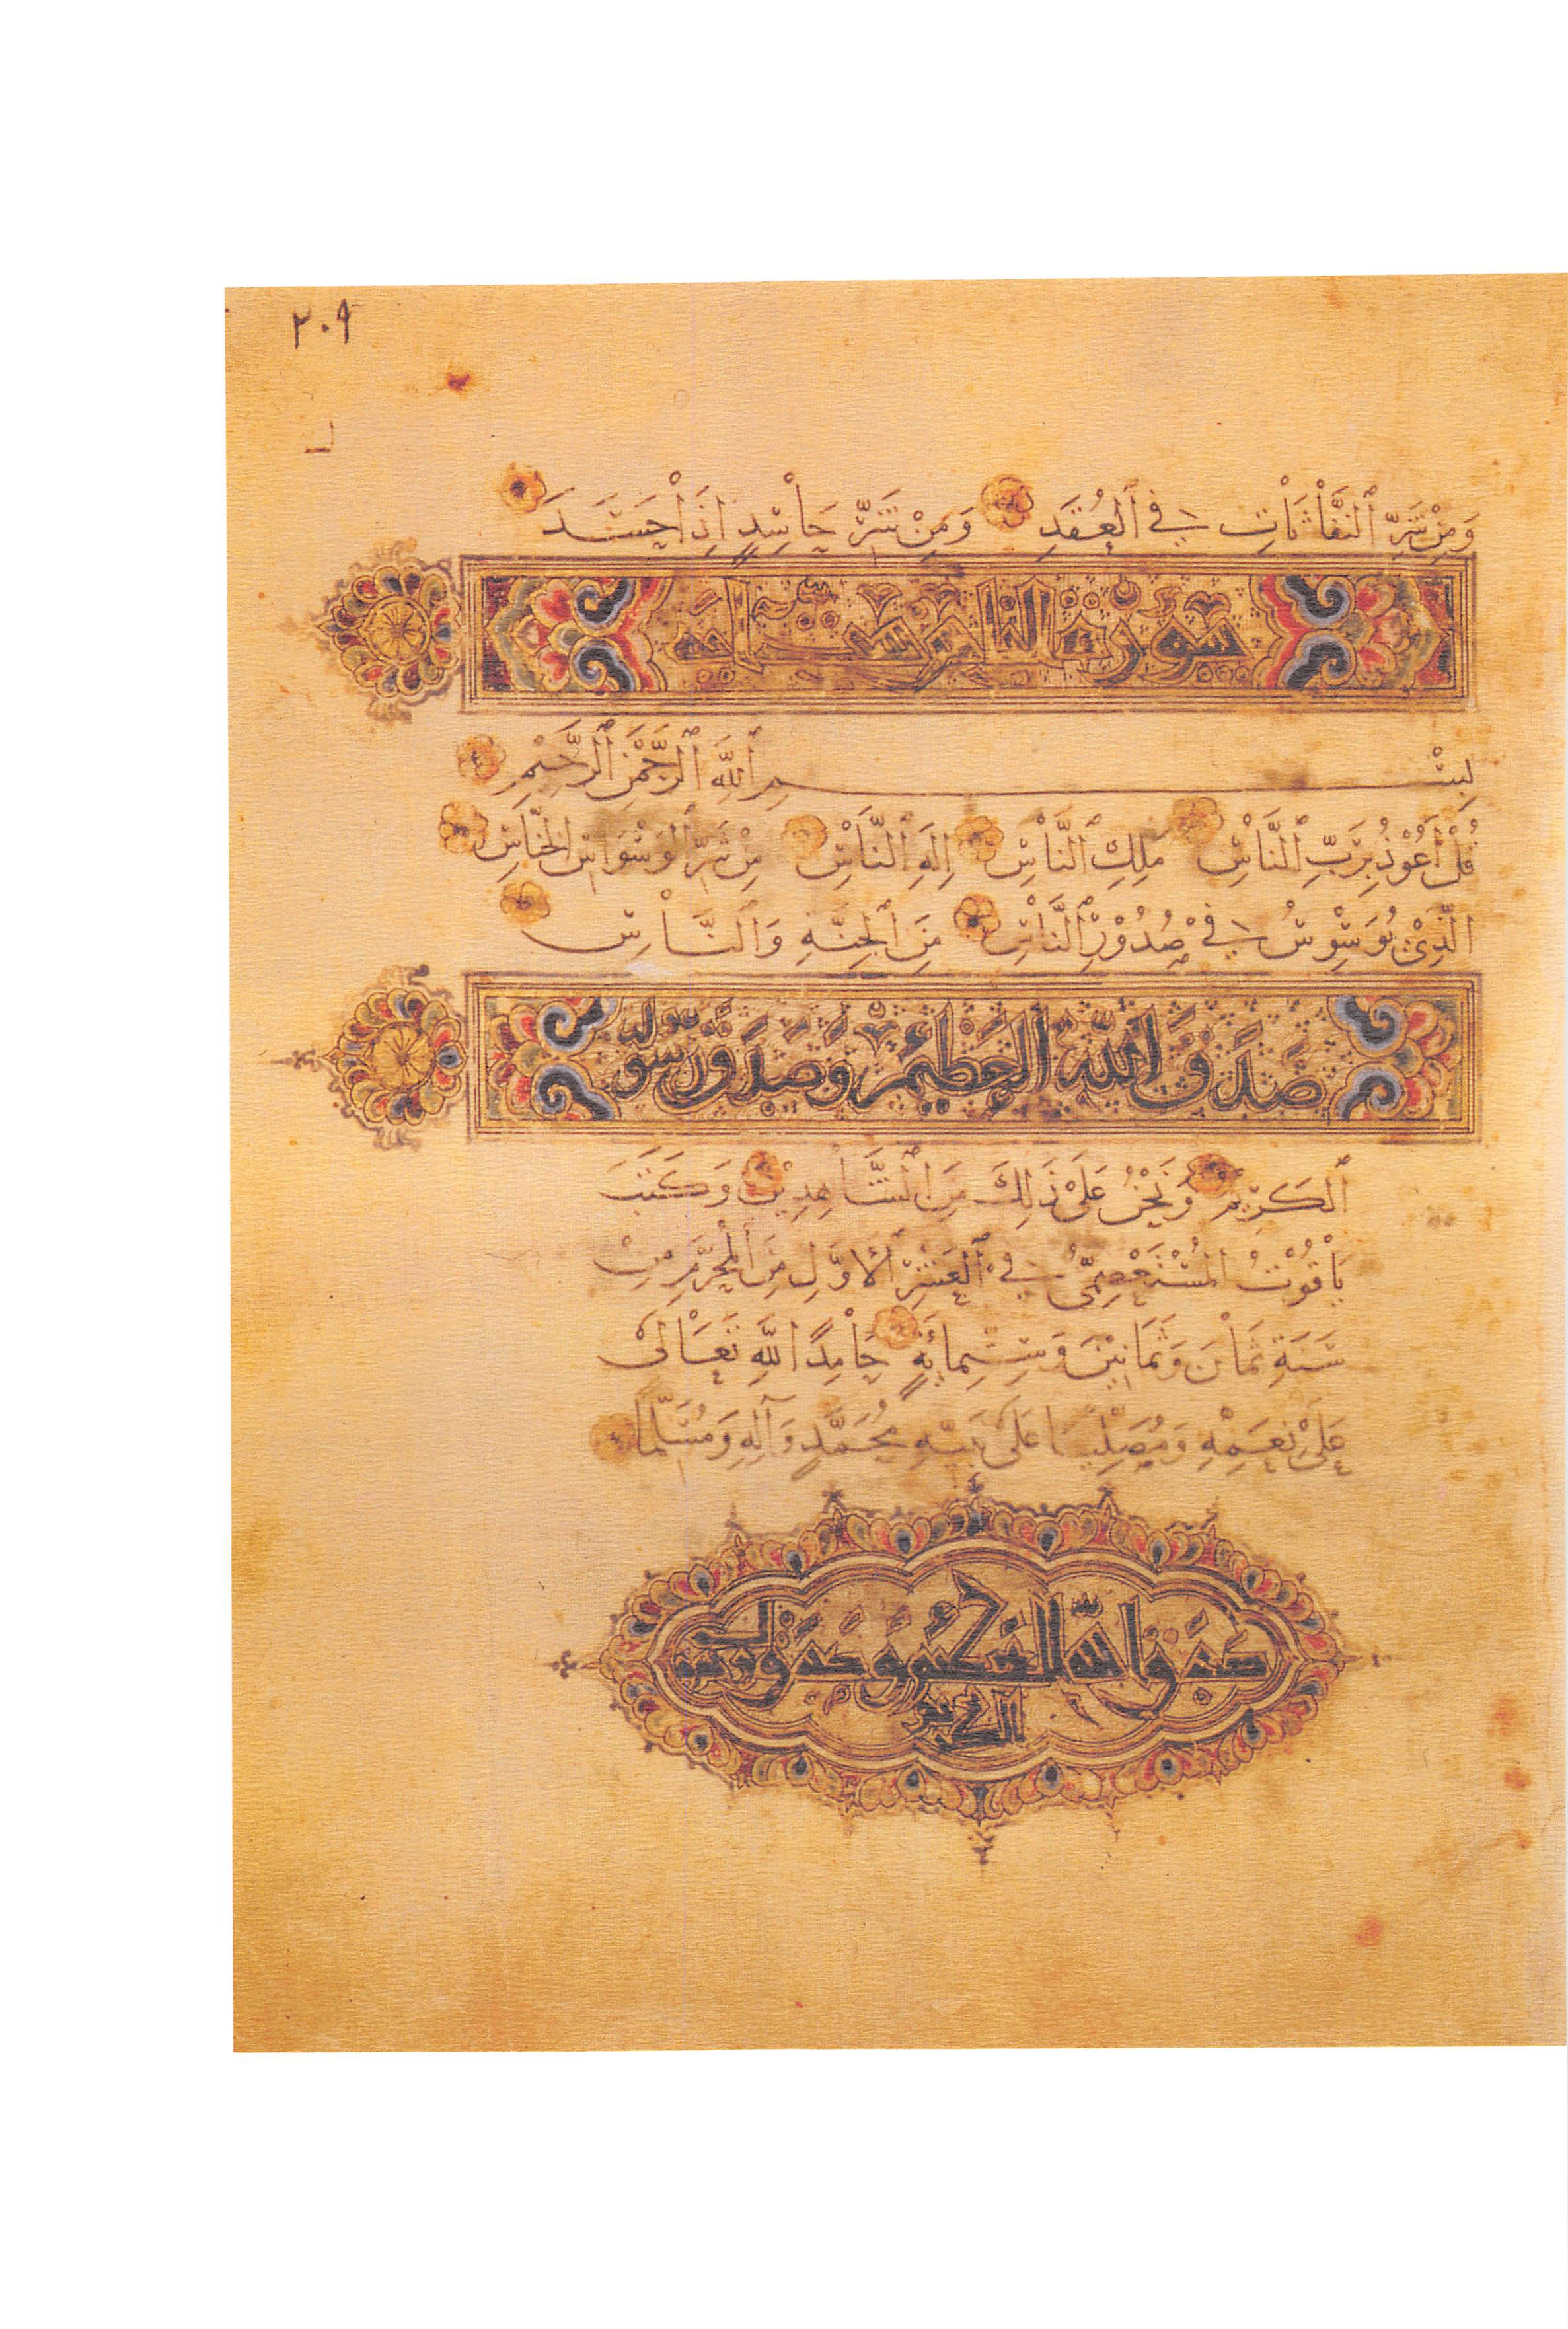 ٢٠٩
وَمِنْ شَرِّ ٱلنَّفَّاثَاتِ فِي ٱلْعُقَدِ وَمِنْ شَرِّ حَاسِدٍ إِذَا حَسَدَ
سورة الناس ست آيات
بِسْمِ ٱللَّهِ ٱلرَّحْمٰنِ ٱلرَّحِيمِ
قُلْ أَعُوْذُ بِرَبِّ ٱلنَّاسِ مَلِكِ ٱلنَّاسِ إِلَهِ ٱلنَّاسِ مِنْ شَرِّ ٱلْوَسْوَاسِ ٱلْخَنَّاسِ
الَّذِيْ يُوَسْوِسُ فِيْ صُدُوْرِ ٱلنَّاسِ مِنَ ٱلْجِنَّةِ وَٱلنَّاسِ
صَدَقَ ٱللَّهُ ٱلْعَظِيْمُ وَصَدَقَ رَسُولُهُ
ٱلْكَرِيْمُ وَنَحْنُ عَلَىْ ذَلِكَ مِنَ ٱلشَّاهِدِيْنَ وَكَتَبَ
يَاقُوْتُ ٱلْمُسْتَعْصِمِيُّ فِيْ ٱلْعَشْرِ ٱلْأَوَّلِ مِنَ ٱلْمُحَرَّمِ مِنْ
سَنَةِ ثَمَانَ وَثَمَانِيْنَ وَسِتِّمِائَةٍ حَامِدًا للَّهِ تَعَالَىْ
عَلَىْ نِعَمِهِ وَمُصَلِّيًا عَلَىْ نَبِيِّهِ مُحَمَّدٍ وَآلِهِ وَمُسَلِّمًا
صدق الله العظيم وصدق رسوله
الكريم